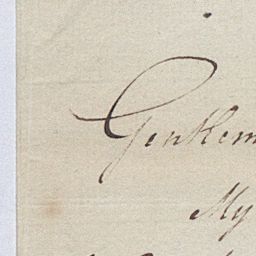 Gentlem
My